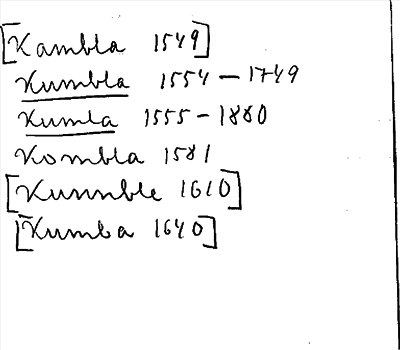 [Kambla 1549]
Kumbla 1554 – 1749
Kumla 1555 – 1880
Kombla 1581
[Kunnble 1610]
[Kumba 1640]